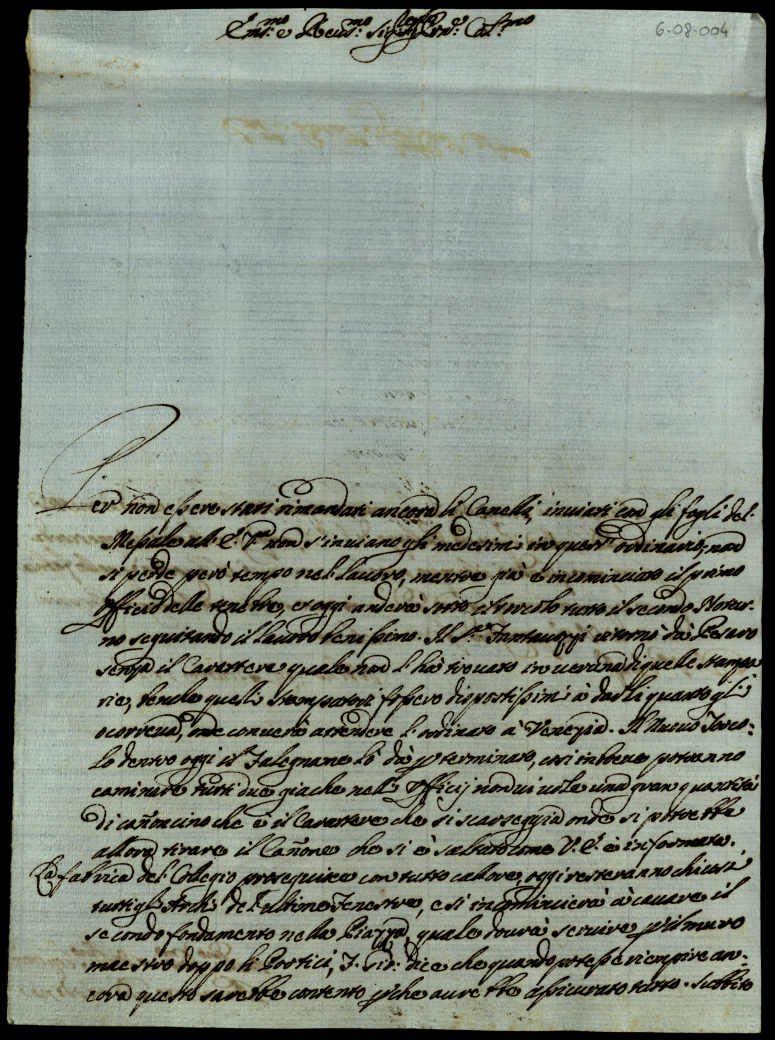 6-08-004
Em.mo e Reud.mo Sig.r Sig.r e Prone Col.mo
Per non essere stati rimandati ancora li Canella, inuiati con gli fogli del
Messale all' E. V.ra non s'inuiano gli medesimi in quest' ordinario, non
si perde però tempo nel lauoro, mentre già è incominciato il primo
officio delle tenebre, et oggi anderà sotto il torcolo tutto il secondo Notur-
no seguitando il lauoro benissimo. Il S.r Fantauzzi ritornò da Pesaro
senza il Carattere quale non l'hà trouato in ueruna di quelle stampe-
rie, benche quelli stampatori fossero dispostissimi à darli quanto gli
ocorreua, onde conuerrà attendere l'ordinato à Venezia. Il Nuouo Torco-
lo dentro oggi il Falegname lo dà p terminato, così in breue potranno
caminare tutti due giache nell' officij non ui uole una gran quantità
di cañoncino che è il Carattere che si scarseggia onde si potrebbe
allora tirare il Cañone che si è saltato come V. E. è informata.
La fabrica del Collegio proseguisce con tutto calore, oggi resteranno chiusi
tutti gl'Archi dell'ultime Fenestre, e si incomincierà à cauare il
secondo fondamento nella Piazza, quale dourà seruire p il muro
maestro doppo li Portici, dice che quando potesse riempire an-
cora questo sarebbe contento p che aurebbe assicurato tutto. Subbito